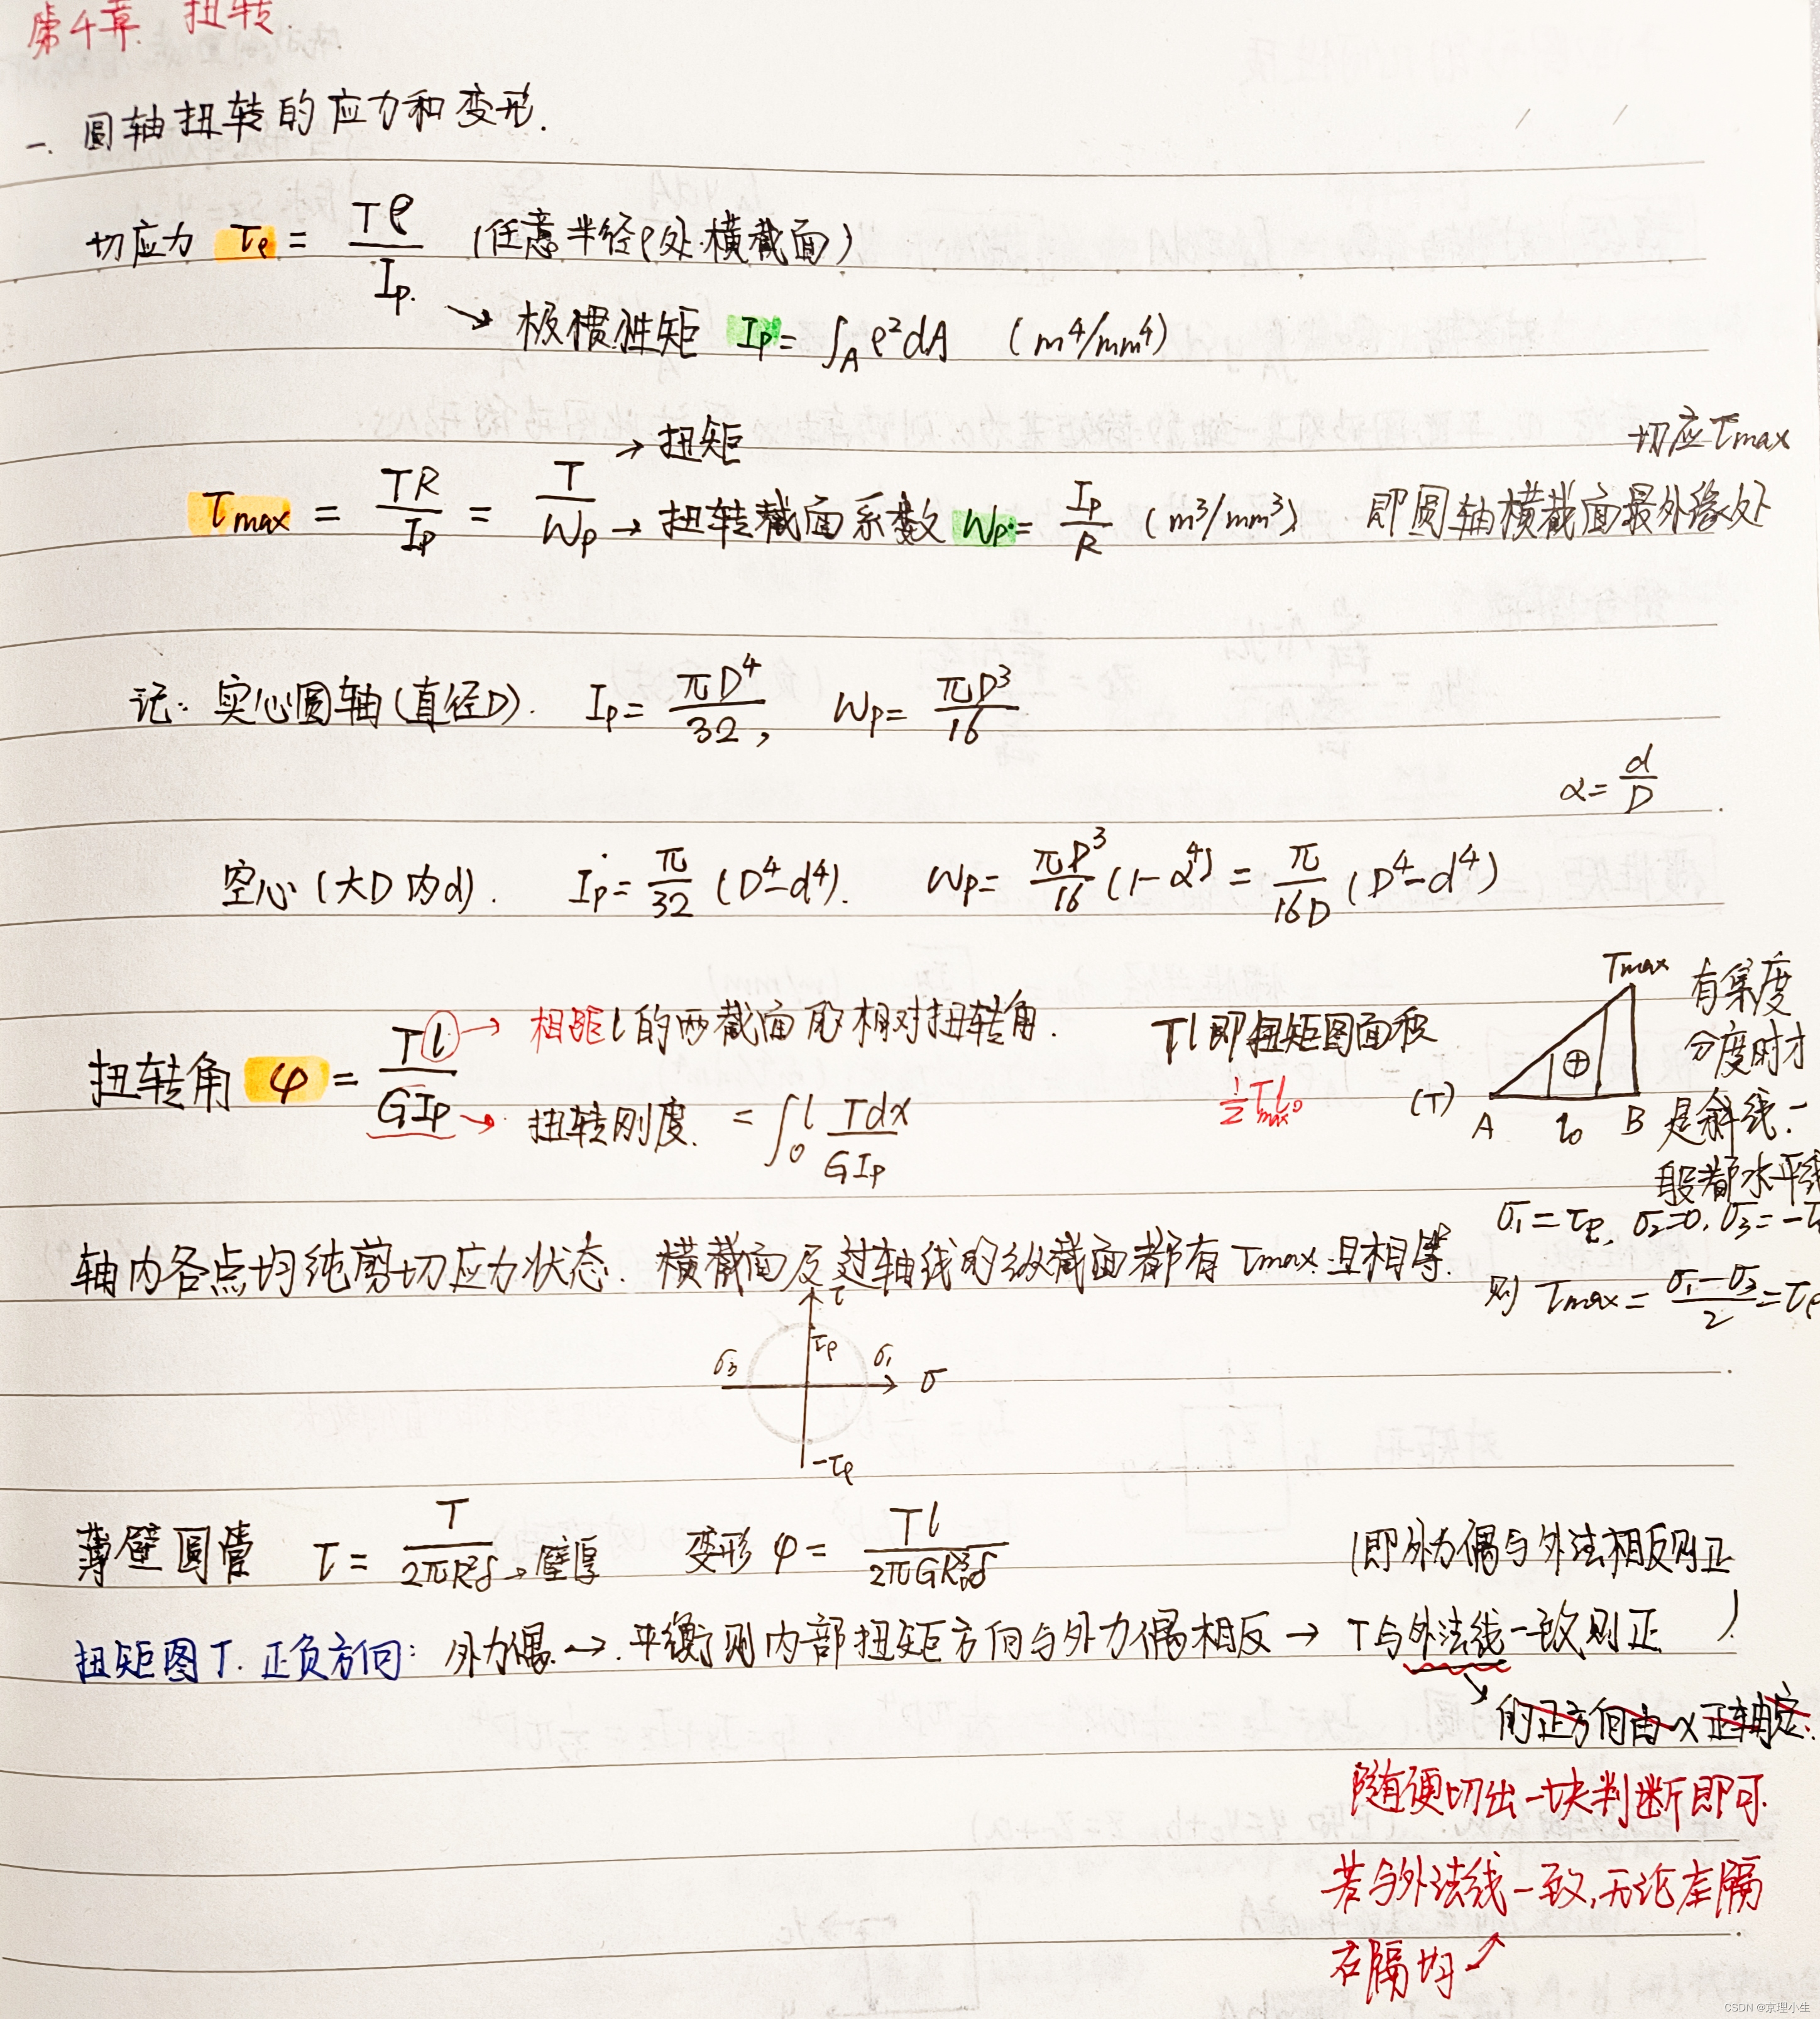 第4章 扭转
一. 圆轴扭转的应力和变形.
切应力 τρ = Tρ/Ip (任意半径ρ处横截面)
→ 极惯性矩 Ip = ∫A ρ²dA (m⁴/mm⁴)
→ 扭矩
切应τmax
τmax = TR/Ip = T/Wp → 扭转截面系数 Wp = Ip/R (m³/mm³) 即圆轴横截面最外缘处
记: 实心圆轴(直径D). Ip = πD⁴/32, Wp = πD³/16
α = d/D
空心(大D内d). Ip = π/32 (D⁴-d⁴). Wp = πD³/16 (1-α⁴) = π/16D (D⁴-d⁴)
扭转角 φ = Tl/GIp → 相距l的两截面的相对扭转角.
→ 扭转刚度. = ∫₀ˡ Tdx/GIp
Tl即扭矩图面积
½Tmax l₀
Tmax
(T) A l₀ B ⊕
有集度
分度时才
是斜线.一
般都水平线
轴内各点均纯剪切应力状态. 横截面及过轴线的纵截面都有τmax且相等.
σ₁=τρ, σ₂=0, σ₃=-τ
则 τmax = (σ₁-σ₃)/2 = τρ
τ
τρ
σ₃ σ₁ σ
-τρ
薄壁圆管 τ = T/2πR²δ → 壁厚 变形 φ = Tl/2πGR₀³δ
(即外力偶与外法相反则正)
扭矩图T. 正负方向: 外力偶 → 平衡则内部扭矩方向与外力偶相反 → T与外法线一致则正
的正方向由x正轴定.
随便切出一块判断即可.
若与外法线一致,无论左隔
右隔均↗
CSDN @京理小生